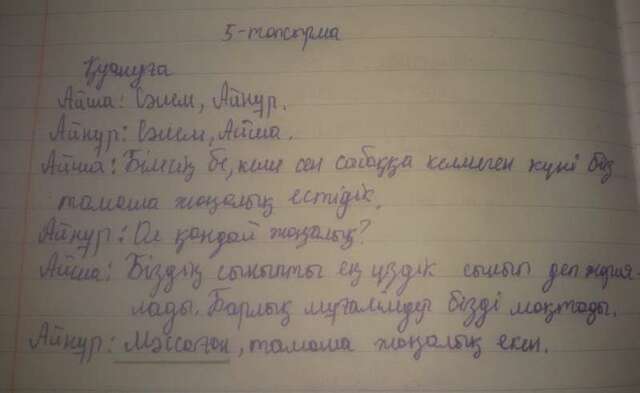 5-тапсырма
Қуануға
Айша: Сәлем, Айнұр.
Айнұр: Сәлем, Айша.
Айша: Білсең бе, кеше сен сабаққа келмеген күні біз
тамаша жаңалық естідік.
Айнұр: Ол қандай жаңалық?
Айша: Біздің сыныпты ең үздік сынып деп жария-
лады. Барлық мұғалімдер бізді мақтады.
Айнұр: Мәссаған, тамаша жаңалық екен.